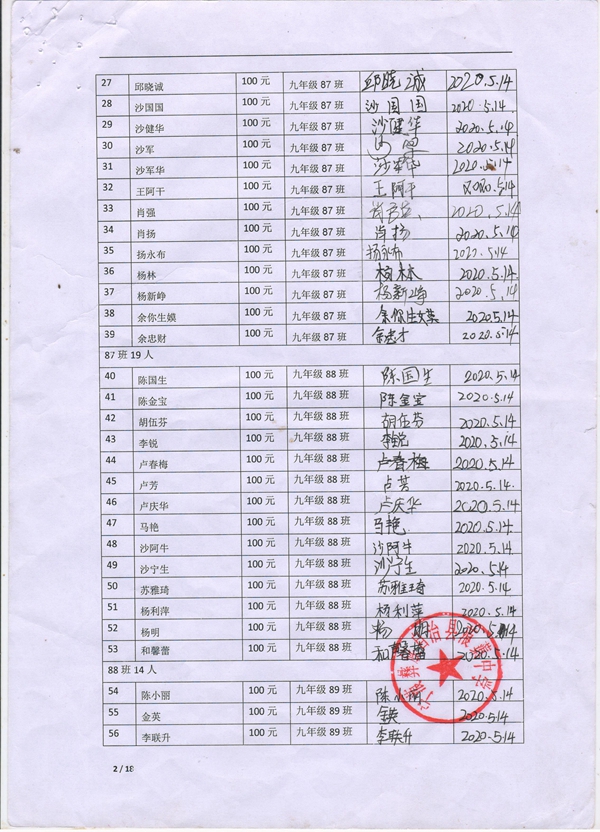 27 邱晓诚 100元 九年级87班 邱晓诚 2020.5.14
28 沙国国 100元 九年级87班 沙国国 2020.5.14
29 沙健华 100元 九年级87班 沙健华 2020.5.14
30 沙军 100元 九年级87班 沙军 2020.5.14
31 沙军华 100元 九年级87班 沙军华 2020.5.14
32 王阿干 100元 九年级87班 王阿干 2020.5.14
33 肖强 100元 九年级87班 2020.5.14
34 肖扬 100元 九年级87班 肖扬 2020.5.14
35 扬永布 100元 九年级87班 扬永布 2020.5.14
36 杨林 100元 九年级87班 杨林 2020.5.14
37 杨新峥 100元 九年级87班 杨新峥 2020.5.14
38 余你生嫫 100元 九年级87班 余你生嫫 2020.5.14
39 余忠财 100元 九年级87班 余忠才 2020.5.14
87班19人
40 陈国生 100元 九年级88班 陈国生 2020.5.14
41 陈金宝 100元 九年级88班 陈金宝 2020.5.14
42 胡伍芬 100元 九年级88班 胡伍芬 2020.5.14
43 李锐 100元 九年级88班 李锐 2020.5.14
44 卢春梅 100元 九年级88班 卢春梅 2020.5.14
45 卢芳 100元 九年级88班 卢芳 2020.5.14
46 卢庆华 100元 九年级88班 卢庆华 2020.5.14
47 马艳 100元 九年级88班 马艳 2020.5.14
48 沙阿牛 100元 九年级88班 沙阿牛 2020.5.14
49 沙宁生 100元 九年级88班 沙宁生 2020.5.14
50 苏雅琦 100元 九年级88班 苏雅琦 2020.5.14
51 杨利萍 100元 九年级88班 杨利萍 2020.5.14
52 杨明 100元 九年级88班 杨明 2020.5.14
53 和馨蕾 100元 九年级88班 和馨蕾 2020.5.14
88班14人
54 陈小丽 100元 九年级89班 陈小丽 2020.5.14
55 金英 100元 九年级89班 金英 2020.5.14
56 李联升 100元 九年级89班 李联升 2020.5.14
2 / 18